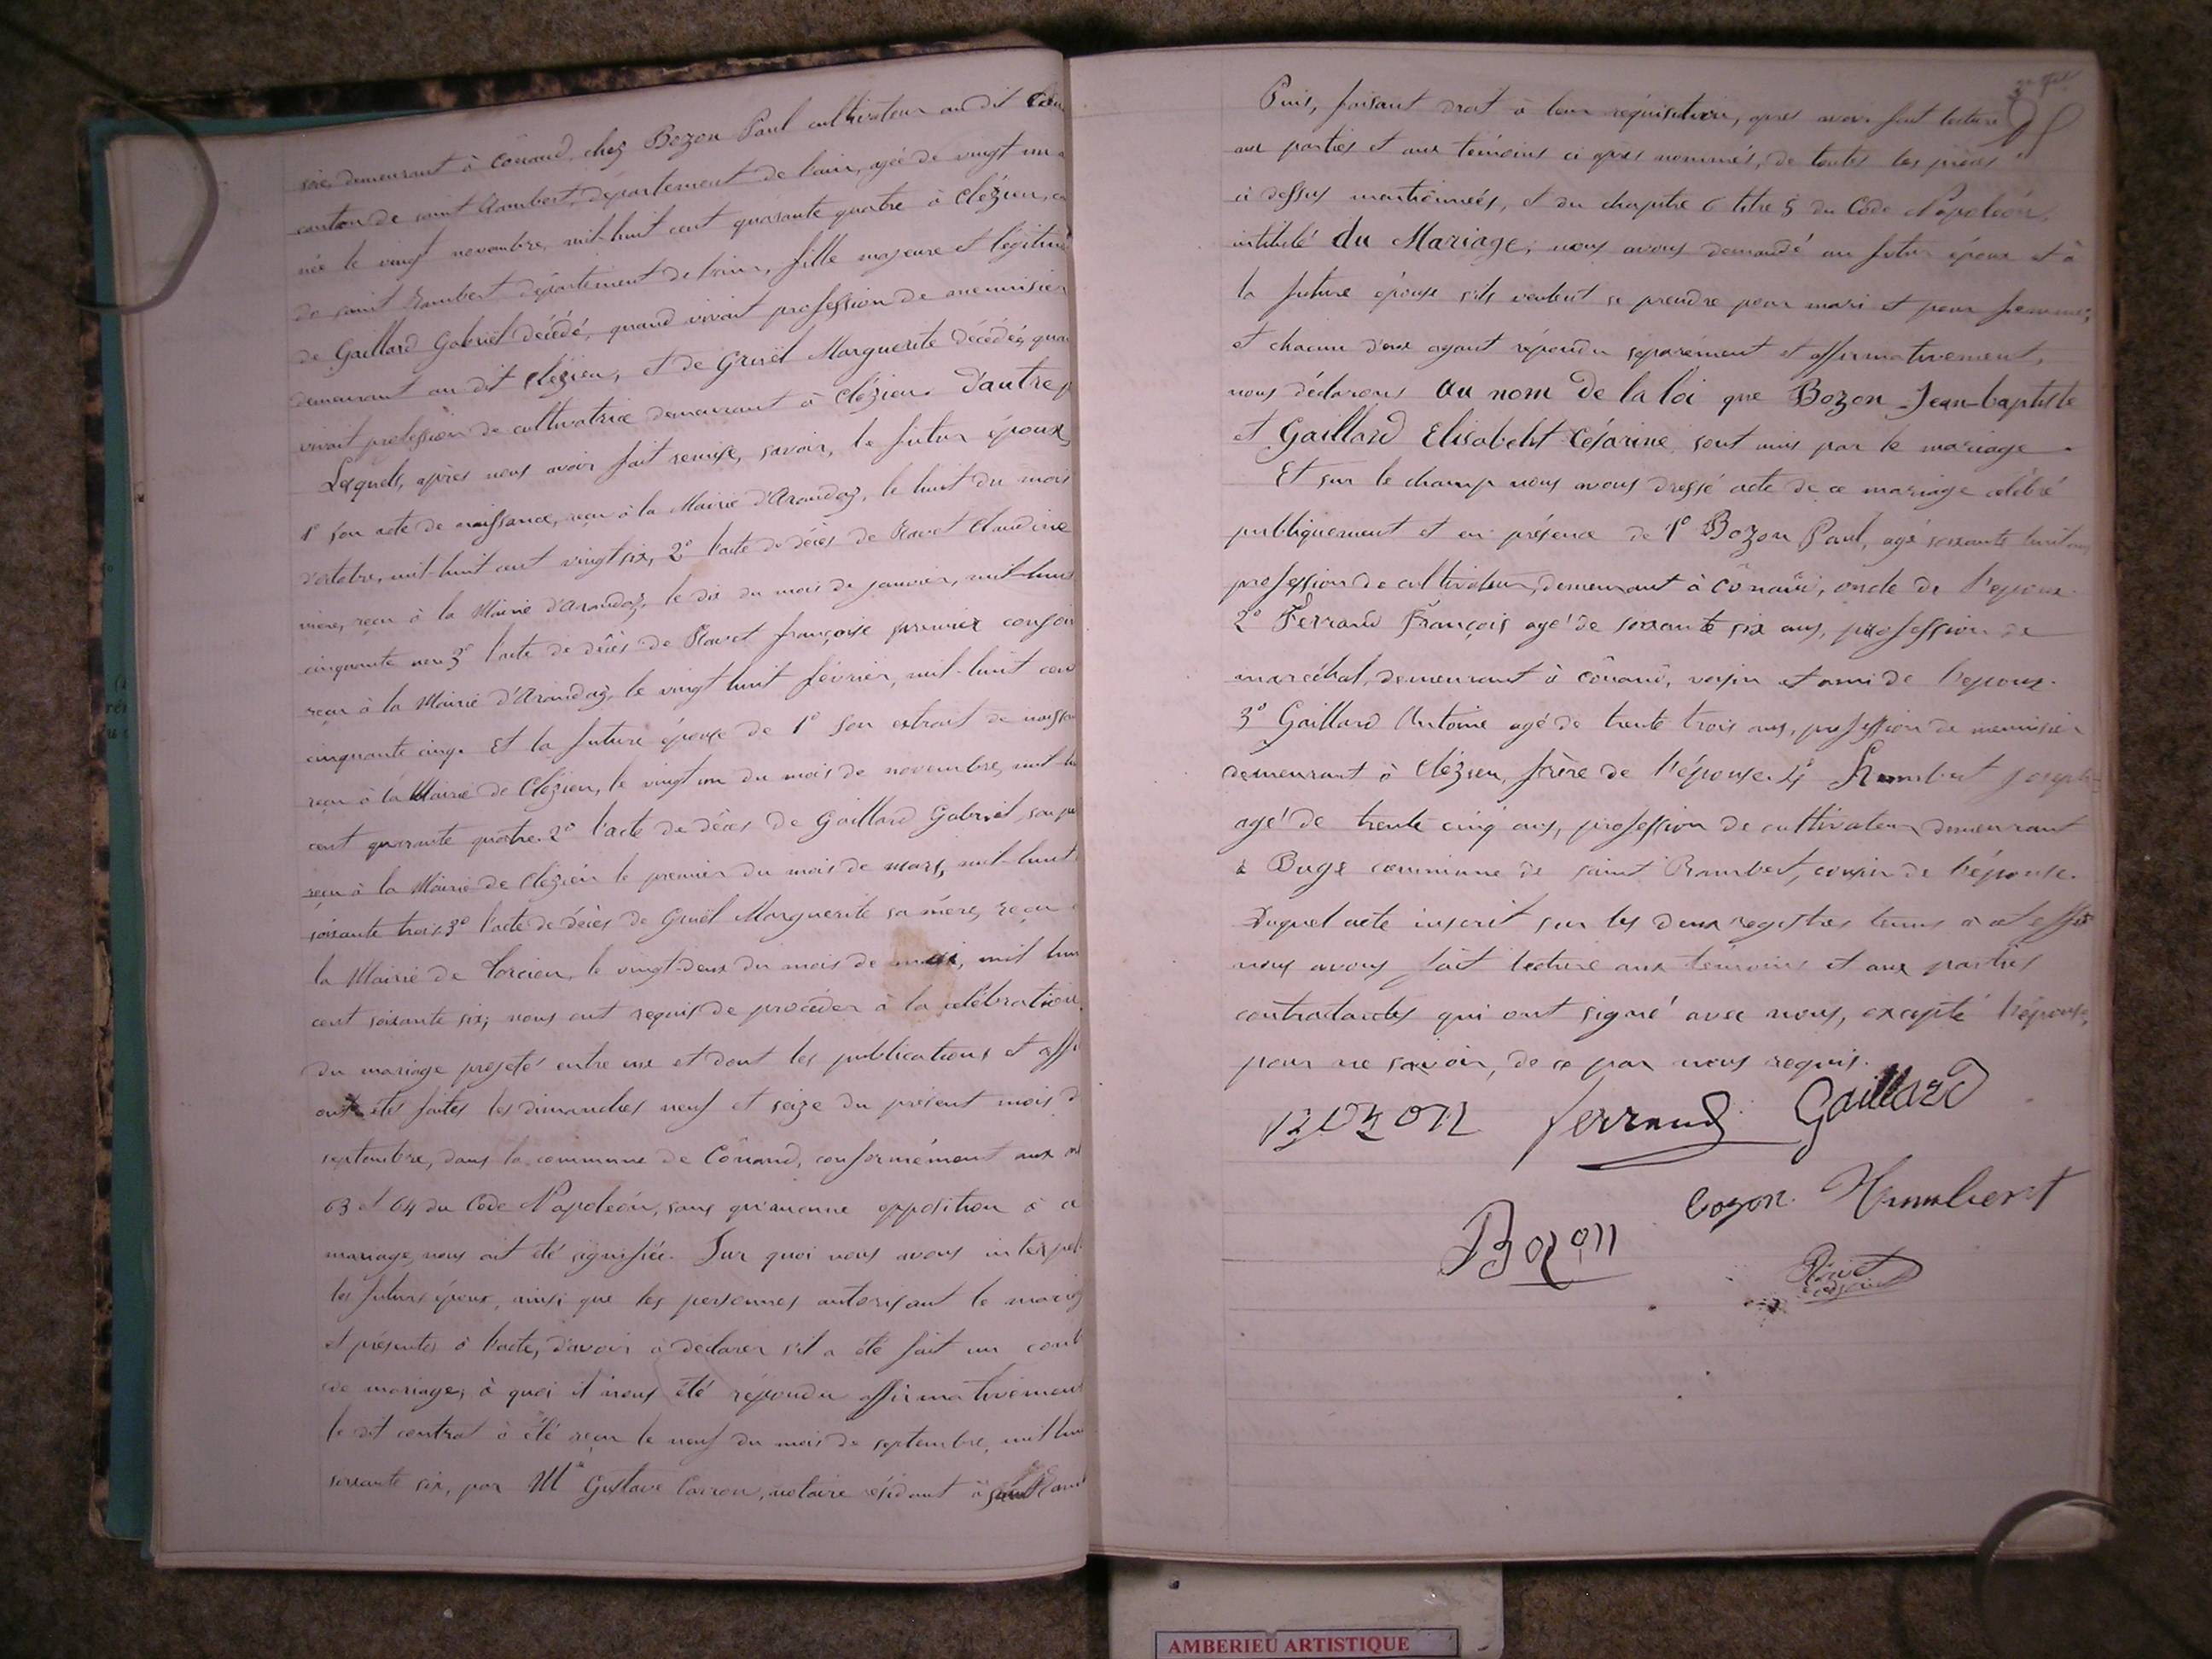 demeurant à Cônand, chez Bozon Paul cultivateur au dit
canton de saint Rambert, département de l'ain, agée de vingt un
née le vingt novembre, mil-huit cent quarante quatre à Clézieu,
de saint Rambert département de l'ain, fille majeure et légitime
de Gaillard Gabriel décédé, quand vivait profession de menuisier
demeurant au dit Clézieu, et de Gruël Marguerite décédée, quan
vivait profession de cultivatrice demeurant à Clézieu. D'autre p
Lesquels, après nous avoir fait remise, savoir, le futur époux,
1º son acte de naissance, reçu à la Mairie d'Arandaz, le huit du mois
d'octobre, mil-huit cent vingt six, 2º l'acte de décès de Ravet Claudine
reçu à la Mairie d'Arandaz, le dix du mois de janvier, mil-huit
cinquante 3º l'acte de décès de Ravet françoise
reçu à la Mairie d'Arandaz, le vingt huit février, mil-huit cent
cinquante cinq. Et la future épouse de 1º son extrait de naissan
reçu à la Mairie de Clézieu, le vingt un du mois de novembre, mil-hu
cent quarante quatre. 2º l'acte de décès de Gaillard Gabriel, son pè
reçu à la Mairie de Clézieu le premier du mois de mars, mil-huit
soixante trois. 3º l'acte de décès de Gruël Marguerite sa mère, reçu
la Mairie de Torcieu, le vingt-deux du mois de mai, mil hui
cent soixante six; nous ont requis de procéder à la célébration
du mariage projeté entre eux et dont les publications et affi
ont étés faites les dimanches neuf et seize du présent mois d
septembre, dans la commune de Cônand, conformément aux
63 et 64 du Code Napoléon, sans qu'aucune opposition à ce
mariage, nous ait été signifiée. Sur quoi nous avons interpel
les futurs époux, ainsi que les personnes autorisant le mariag
et présentes à l'acte, d'avoir à déclarer s'il a été fait un cont
de mariage, à quoi il nous été répondu affirmativement
le dit contrat à été reçu le neuf du mois de septembre, mil hui
soixante six, par Me Gustave Carron, notaire résidant à
Puis, faisant droit à leur réquisition, après avoir fait lecture
aux parties et aux témoins ci après nommés, de toutes les pièces
ci dessus mentionnées, et du chapitre 6 titre 5 du Code Napoléon,
intitulé du Mariage; nous avons demandé au futur époux et à
la future épouse s'ils veulent se prendre pour mari et pour femme;
et chacun d'eux ayant répondu séparément et affirmativement,
nous déclarons au nom de la loi que Bozon Jean-baptiste
et Gaillard Elisabeht Césarine sont unis par le mariage.
Et sur le champ nous avons dressé acte de ce mariage célébré
publiquement et en présence de 1º Bozon Paul, agé soixante huit ans
profession de cultivateur, demeurant à Cônand, oncle de l'époux.
2º Ferrand François agé de soixante six ans, profession de
maréchal, demeurant à Cônand, voisin et ami de l'époux.
3º Gaillard Antoine agé de trente trois ans, profession de menuisier
demeurant à Clézieu, frère de l'épouse. 4º Humbert joseph
agé de trente cinq ans, profession de cultivateur demeurant
à Buges commune de saint Rambert, cousin de l'épouse.
Duquel acte inscrit sur les deux registres tenus à cet effet
nous avons fait lecture aux témoins et aux parties
contractantes qui ont signé avec nous, excepté l'épouse,
pour ne savoir, de ce par nous requis.
Bozon Ferrand Gaillard
Bozon cozon. Humbert
AMBERIEU ARTISTIQUE